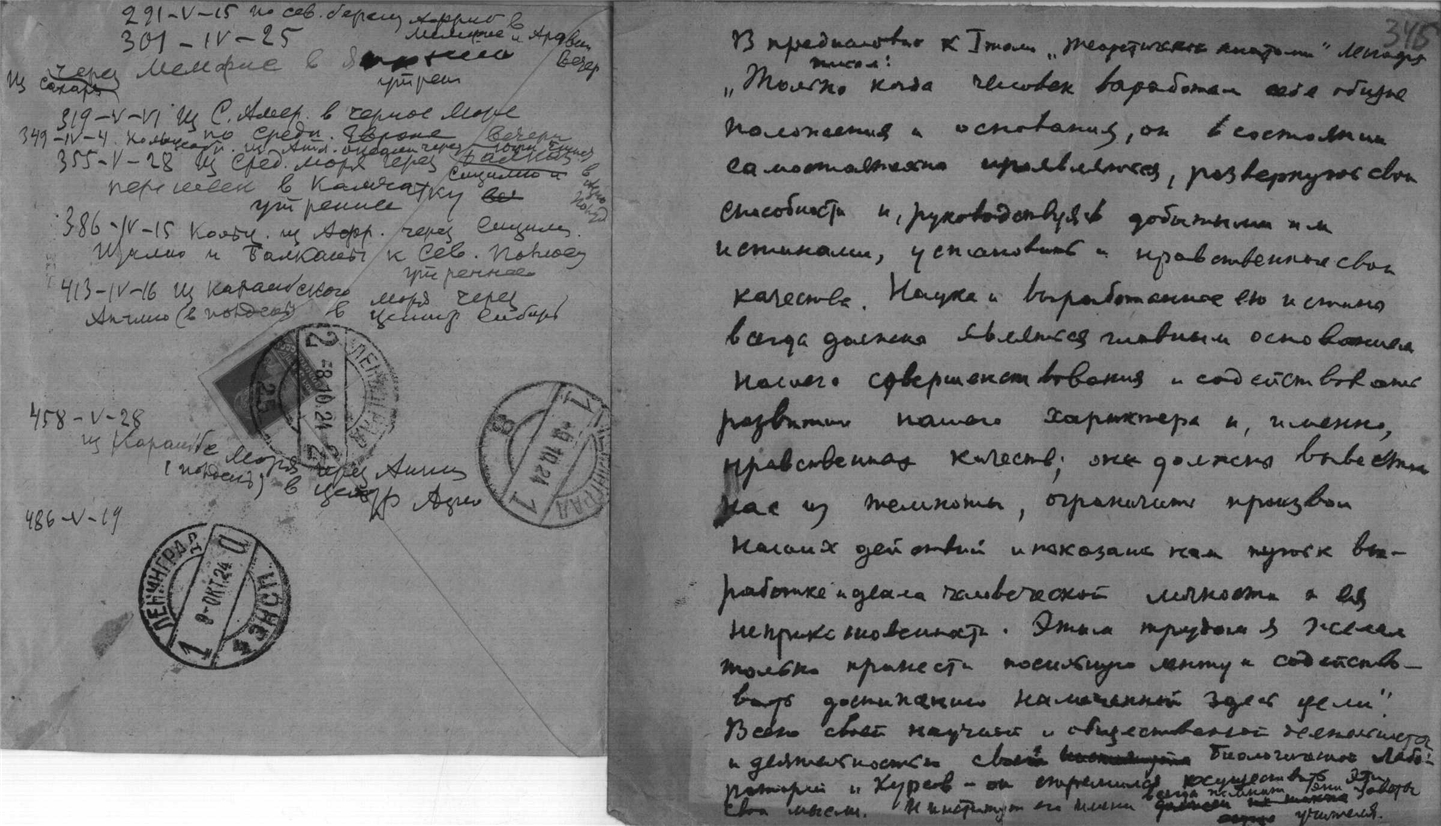 291-V-15 по сев. берегу Африки в
301-IV-25
через Мемфис в
из Сахары
утрен
319-V-VI из С. Амер. в Черное море
по средн. Европе вечерн
349-IV-4.
355-V-28 из Сред. моря через
Сицилию и
перешеек в Камчатку
утренние
386-IV-15 Кольц. из Афр. через Сицил.
и Балканы к Сев. полюсу
утреннее
413-IV-16 из Караибского моря через
Англию (в полдень) в центр Сибири
458-V-28
из Караибс моря через Англию
(полдень) в центр Азии
486-V-19
ЛЕНИНГРАД
2
-8.10.24
225
ЛЕНИНГРАД
8
-8.10.24
1
ЛЕНИНГРАД
1
9-ОКТ.24
345
В предисловию к I тому „Теоретической анатомии" Лесгафт
писал:
„Только когда человек выработает себе общие
положения и основания, он в состоянии
самостоятельно проявляться, развернуть свои
способности и, руководствуясь добытыми им
истинами, установить и нравственные свои
качества. Наука и выработанные ею истины
всегда должны являться главным основанием
нашего совершенствования и содействовать
развитию нашего характера и, именно,
нравственных качеств; они должны вывести
нас из темноты, ограничить произвол
наших действий и показать нам путь к вы-
работке идеала человеческой личности и ея
неприкосновенности. Этим трудом я желал
только принести посильную лепту и содейство-
вать достижению намеченной здесь цели".
Всею своей научной и общественной
и деятельностью своей Биологической Лабо-
ратории и Курсов - он стремился осуществить эти
свои мысли. И институт его имени всегда помнит эти заветы
учителя.